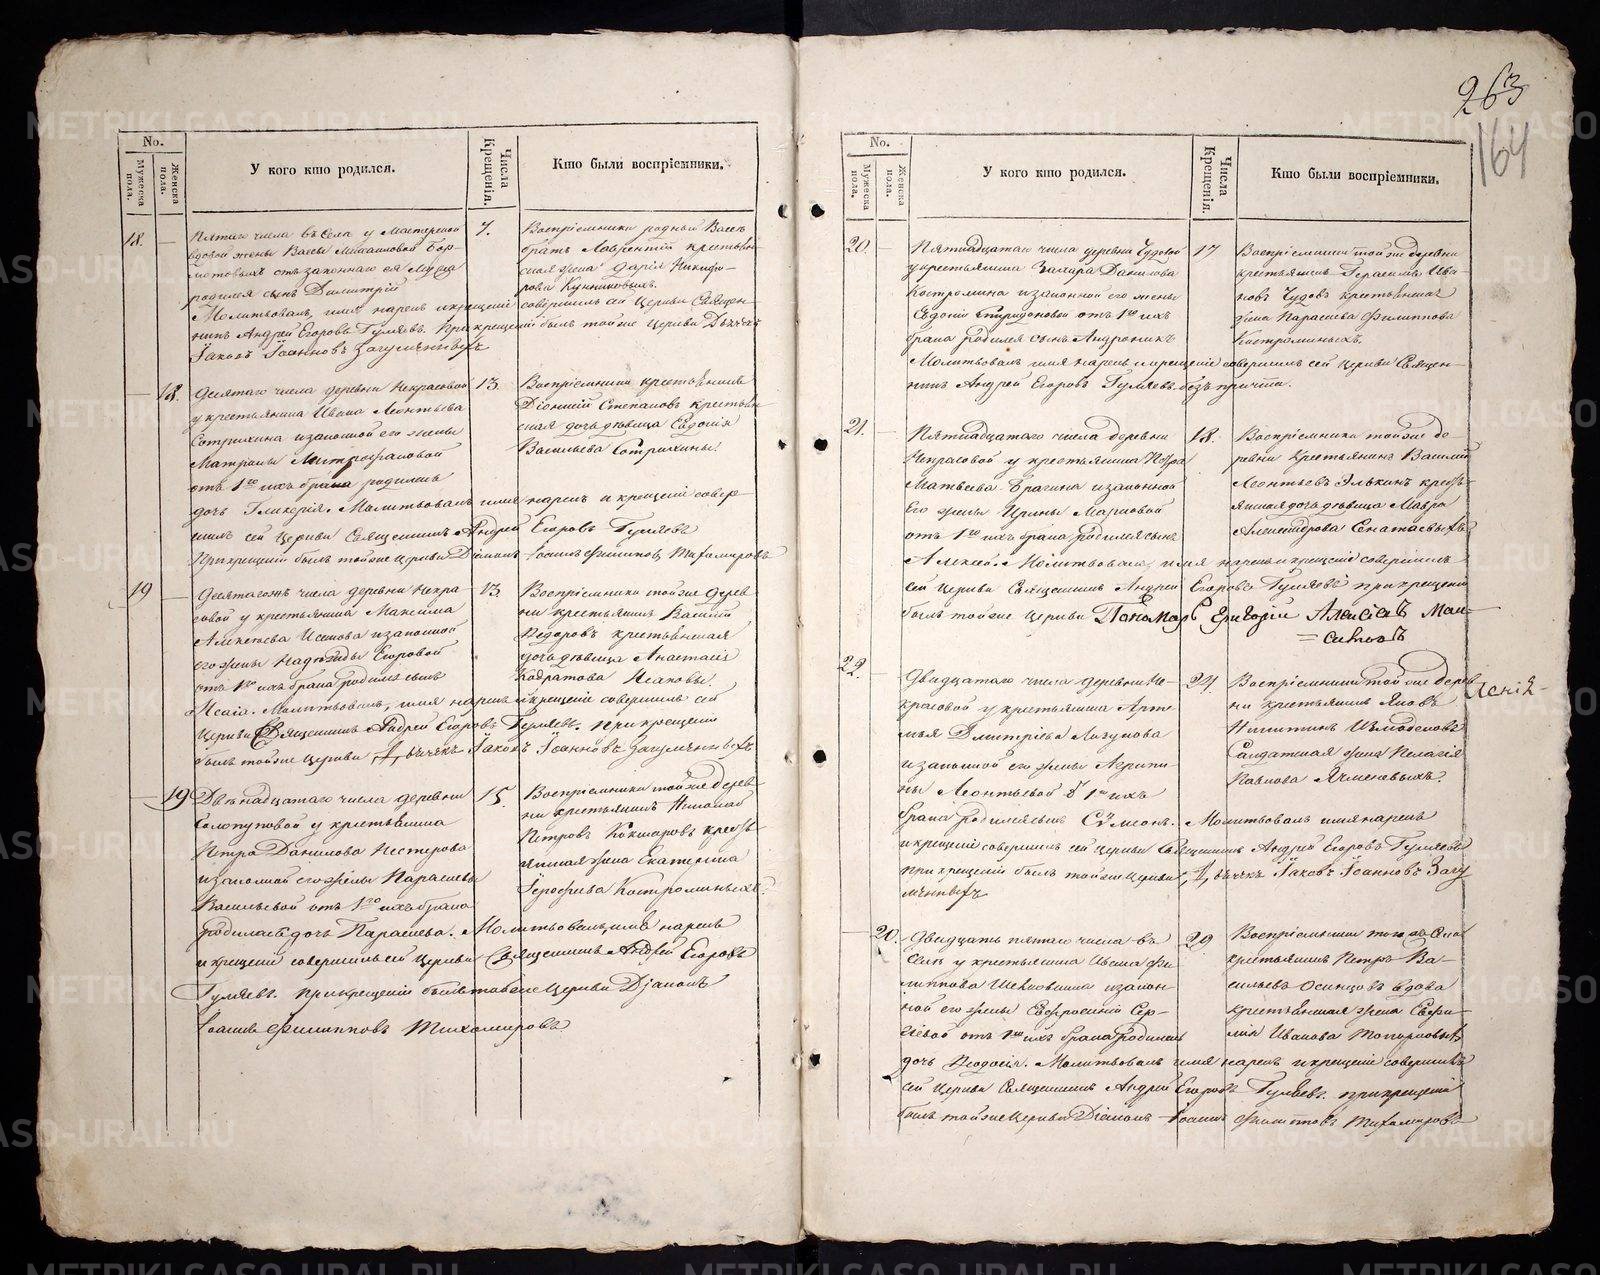 263
164
No.
Мужеска пола.
Женска пола.
У кого кто родился.
Числа Крещенія.
Кто были воспріемники.
18.
—
Пятаго числа въ Селѣ у Мастерской
вдовой жены Васы Михайловой Бор-
отъ законнаго ея мужа
родился сынъ Димитрій
Молитвовалъ, имя нарекъ и крещеніе совершилъ сей Церкви Священ-
никъ Андрей Егоровъ Гуляевъ. При крещеніи былъ тойже Церкви Дьячекъ
Іаковъ Іоанновъ
7.
Воспріемники родный Васѣ
братъ Лаврентій крестьян-
ская жена Дарія Никифо-
рова
—
18.
Десятаго числа деревни Некрасовой
у крестьянина Ивана Леонтьева
изаконной его жены
Матроны Митрофановой
отъ 1го ихъ брака родилась
дочь Гликерія. Молитвовалъ имя нарекъ и крещеніе совер-
шилъ сей Церкви Священникъ Андрей Егоровъ Гуляевъ
При крещеніи былъ тойже Церкви Діаконъ Іоаннъ Филиповъ Тихомировъ
13.
Воспріемники крестьянинъ
Діонисій Степановъ крестьян-
ская дочь дѣвица Евдокія
Васильева
19
—
Десятагожъ числа деревни Некра-
совой у крестьянина Максима
Алексѣева Исакова изаконной
его жены Надежды Егоровой
отъ 1го ихъ брака родился сынъ
Исаія. Молитвовалъ, имя нарекъ и крещеніе совершилъ сей
Церкви Священникъ Андрей Егоровъ Гуляевъ. При крещеніи
былъ тойже Церкви Дьячекъ Іаковъ Іоанновъ
13.
Воспріемники тойже дерев-
ни крестьянинъ Василій
Ѳедоровъ крестьянская
дочь дѣвица Анастасія
Кодратова Исаковы.
—
19
Двѣнадцатаго числа деревни
Солопуповой у крестьянина
Петра Данилова Нестерова
изаконной его жены Параскевы
Васильевой отъ 1го ихъ брака
родилась дочь Параскева. Молитвовалъ, имя нарекъ
и крещеніе совершилъ сей Церкви Священникъ Андрей Егоровъ
Гуляевъ. При крещеніи былъ тойже Церкви Діаконъ
Іоаннъ Филипповъ Тихомировъ
15.
Воспріемники тойже дерев-
ни крестьянинъ Николай
Петровъ Кокшаровъ кресть-
янская жена Екатерина
Ерофѣева Костроминыхъ.
No.
Мужеска пола.
Женска пола.
У кого кто родился.
Числа Крещенія.
Кто были воспріемники.
20.
—
Пятнадцатаго числа деревни Чудовой
у крестьянина Захара Данилова
Костромина изаконной его жены
Евдокіи Спиридоновой отъ 1го ихъ
брака родился сынъ Андроникъ
Молитвовалъ имя нарекъ и крещеніе совершилъ сей Церкви Священ-
никъ Андрей Егоровъ Гуляевъ безъ причта.
17
Воспріемники тойже деревни
крестьянинъ Герасимъ Ива-
новъ Чудовъ крестьянская
жена Параскева Филиппова
Костроминыхъ.
21.
—
Пятнадцатаго числа деревни
Некрасовой у крестьянина Петра
Матвѣева Брагина изаконной
его жены Ирины Марковой
отъ 1го ихъ брака родился сынъ
Алексѣй. Молитвовалъ, имя нарекъ и крещеніе совершилъ
сей Церкви Священникъ Андрей Егоровъ Гуляевъ при крещеніи
былъ тойже Церкви Пономарь Григорій Алексіевъ Мам-
18.
Воспріемники тойже де-
ревни крестьянинъ Василій
Леонтьевъ Елькинъ кресть-
янская дочь дѣвица Мавра
22.
—
Двадцатаго числа деревни Не-
красовой у крестьянина Арте-
мья Дмитріева Лагунова
изаконной его жены Агрипи-
ны Леонтьевой отъ 1го ихъ
брака родился сынъ Сѵмеонъ. Молитвовалъ имя нарекъ
и крещеніе совершилъ сей Церкви Священникъ Андрей Егоровъ Гуляевъ
при крещеніи былъ тойже Церкви Дьячекъ Іаковъ Іоанновъ
24.
Воспріемники тойже дерев-
ни крестьянинъ Яковъ
Никитинъ
Салдатская жена Пелагія
Павлова Ячменевыхъ.
—
20.
Двадцать пятаго числа въ
Селѣ у крестьянина Ивана Фи-
липпова изакон-
ной его жены Евфросиніи Сер-
гѣевой отъ 1го ихъ брака родилась
дочь Ѳеодосія. Молитвовалъ имя нарекъ и крещеніе совершилъ
сей Церкви Священникъ Андрей Егоровъ Гуляевъ. при крещеніи
былъ тойже Церкви Діаконъ Іоаннъ Филиповъ Тихомировъ
29
Воспріемники того же Села
крестьянинъ Петръ Ва-
сильевъ Осинцовъ вдова
крестьянская жена Евфи-
мія Иванова